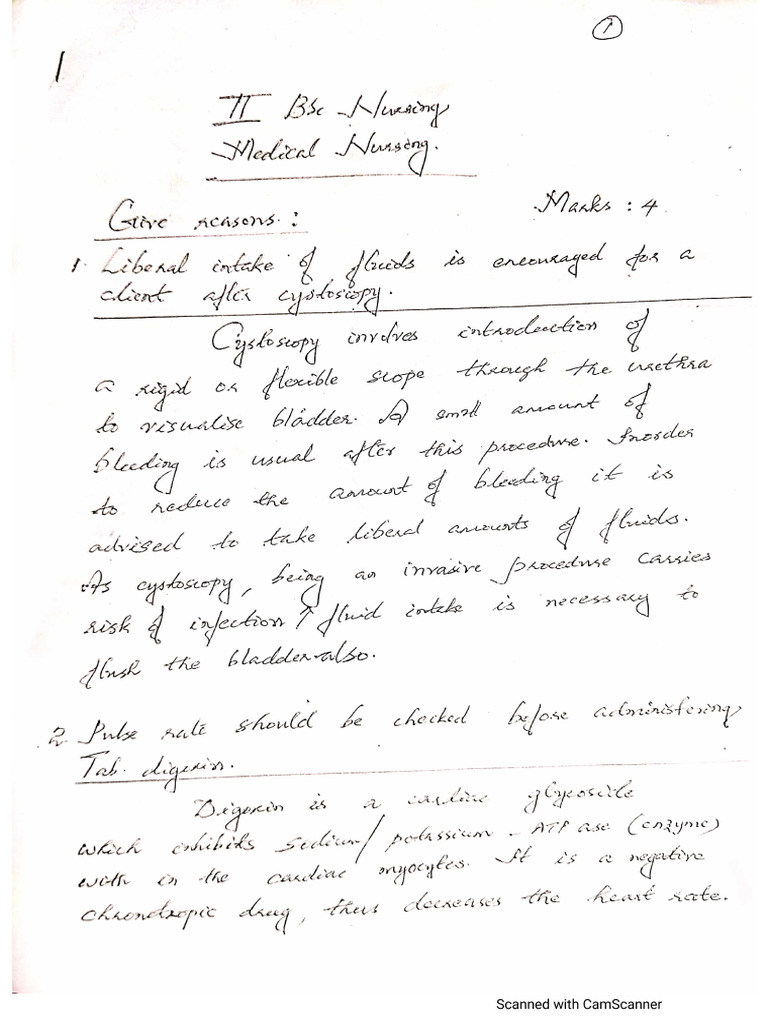 1
1
II BSc Nursing
Medical Nursing.
Give reasons : Marks : 4
1. Liberal intake of fluids is encouraged for a
client after cystoscopy.
Cystoscopy involves introduction of
a rigid or flexible scope through the urethra
to visualise bladder. A small amount of
bleeding is usual after this procedure. Inorder
to reduce the amount of bleeding it is
advised to take liberal amounts of fluids.
As cystoscopy, being an invasive procedure carries
risk of infection ↑ fluid intake is necessary to
flush the bladder also.
2. Pulse rate should be checked before administering
Tab. digoxin.
Digoxin is a cardiac glycoside
which inhibits Sodium/potassium - ATPase (enzyme)
with in the cardiac myocytes. It is a negative
chrondropic drug, thus decreases the heart rate.
Scanned with CamScanner